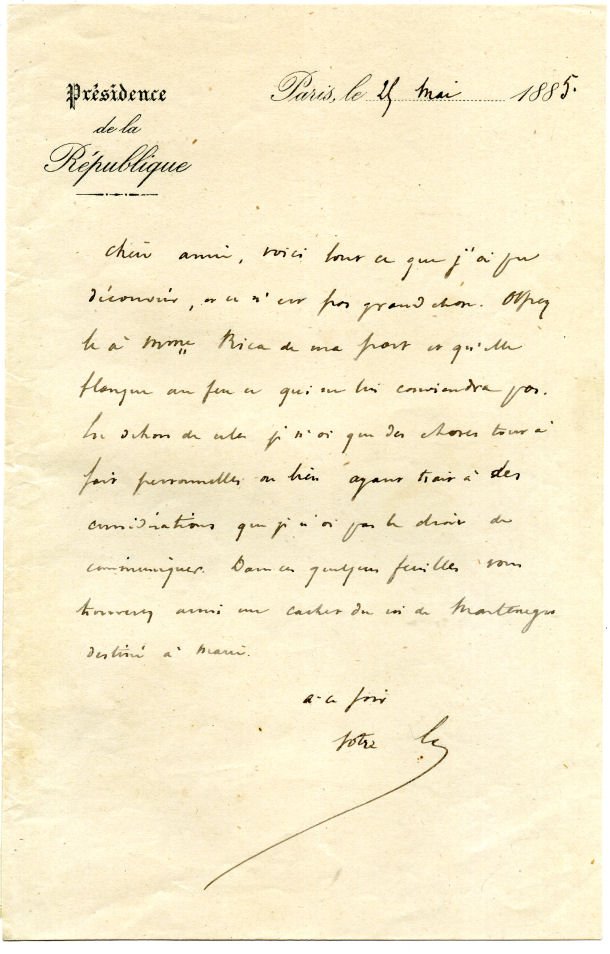 Présidence
de la
République
Paris, le 25 mai 1885.
Cher ami, voici tout ce que j'ai pu
découvrir, et ce n'est pas grand chose. Offrez
le à Mme Rica de ma part et qu'elle
flanque au feu ce qui ne lui conviendra pas.
En dehors de cela je n'ai que des choses tout à
fait personnelles ou bien ayant trait à des
considérations que je n'ai pas le droit de
communiquer. Dans ces quelques feuilles vous
trouverez aussi un cachet du roi de Montenegro
destiné à
a ce soir
votre